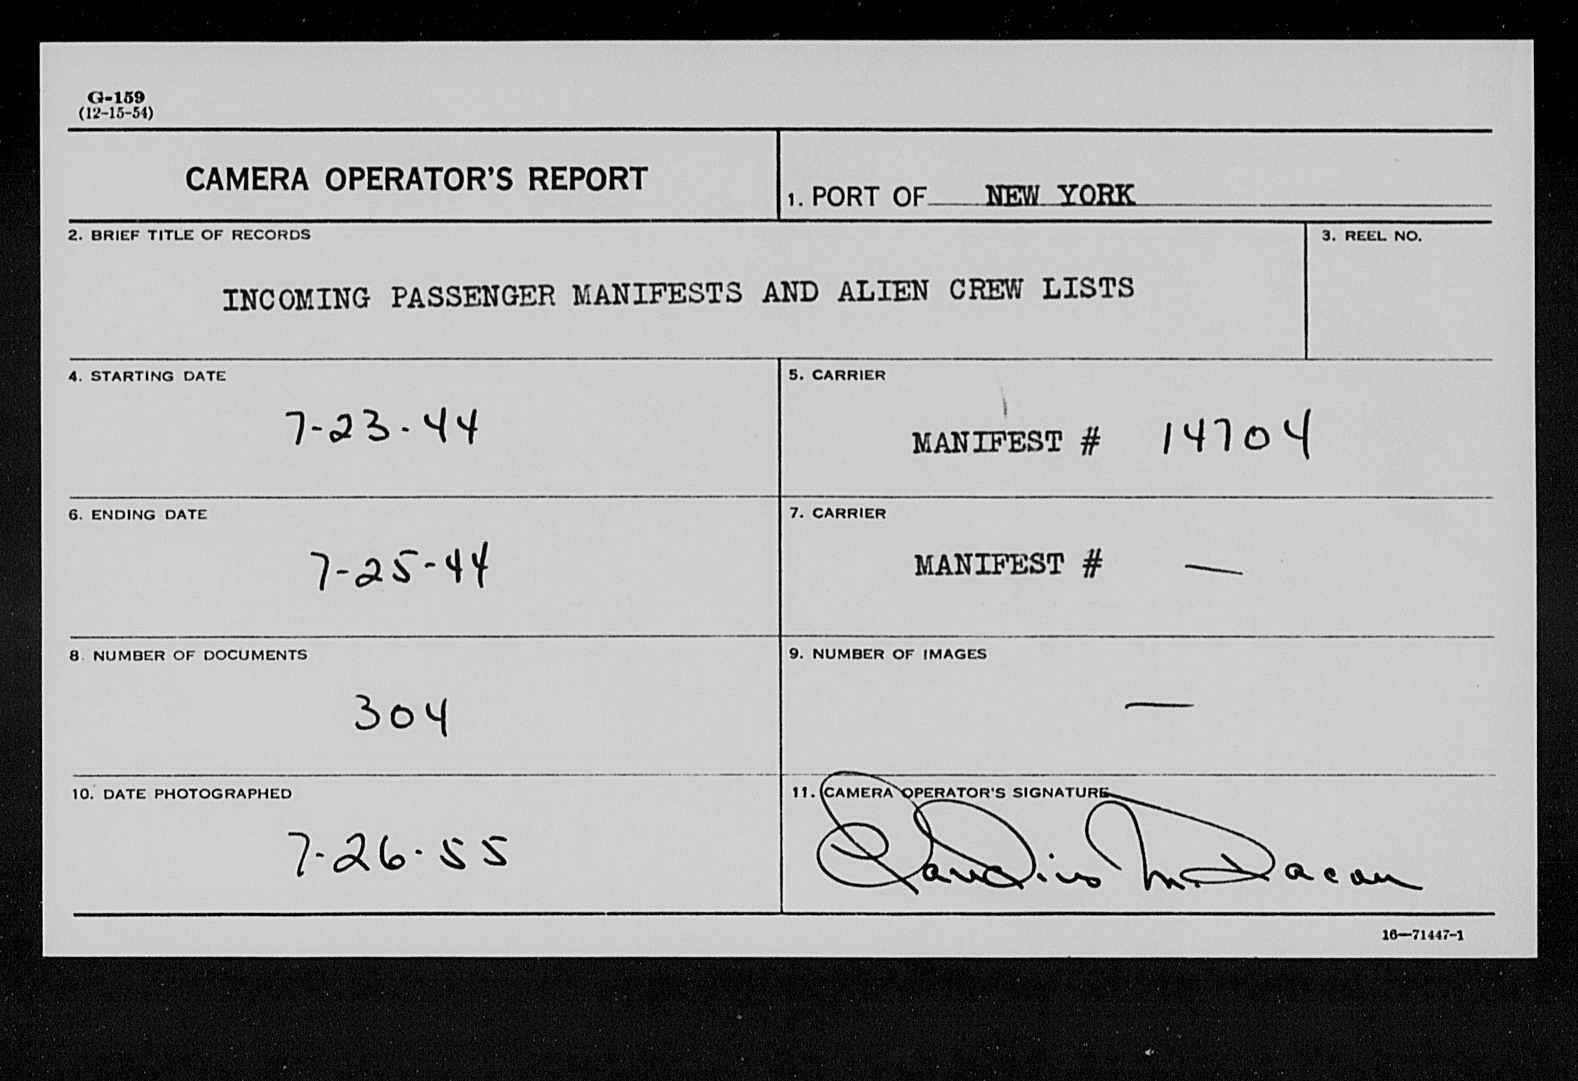 G-159
(12-15-54)
CAMERA OPERATOR'S REPORT
1. PORT OF NEW YORK
2. BRIEF TITLE OF RECORDS
3. REEL NO.
INCOMING PASSENGER MANIFESTS AND ALIEN CREW LISTS
4. STARTING DATE
5. CARRIER
7-23-44
MANIFEST # 14704
6. ENDING DATE
7. CARRIER
7-25-44
MANIFEST # —
8. NUMBER OF DOCUMENTS
9. NUMBER OF IMAGES
304
—
10. DATE PHOTOGRAPHED
11. CAMERA OPERATOR'S SIGNATURE
7-26-55
Claudius M.
16—71447-1